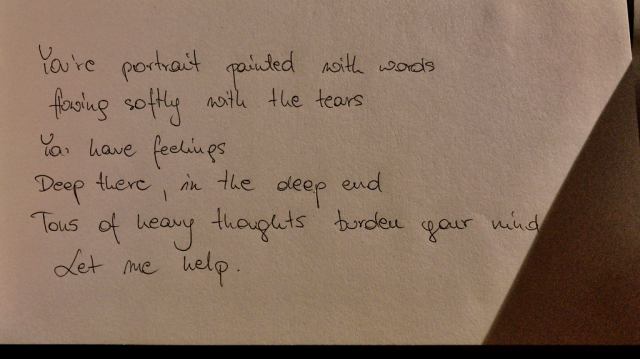 You're portrait painted with words
flowing softly with the tears
You have feelings
Deep there, in the deep end
Tons of heavy thoughts burden your mind
Let me help.